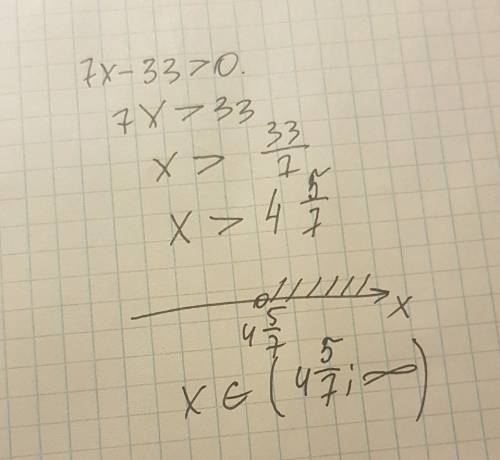 7x-33>0.
7x>33
x> 33/7
x> 4 5/7
x
4 5/7
x ∈ (4 5/7; ∞)